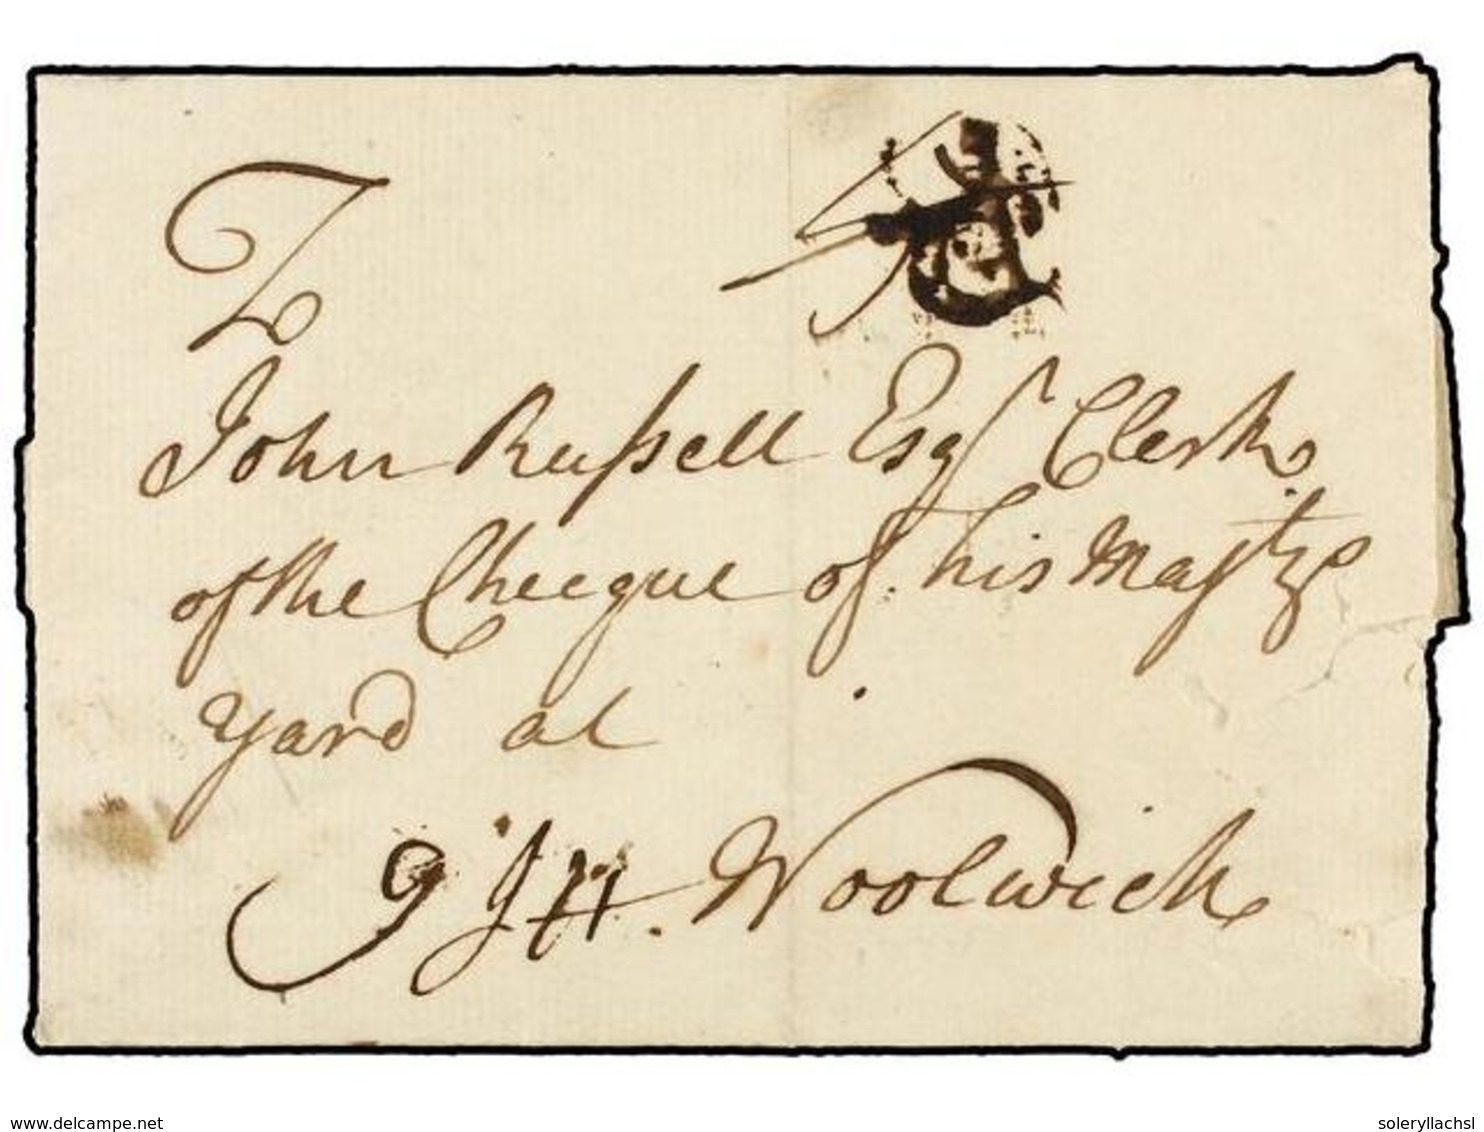 To
John Russell Esqr Clerk
of the Cheeque of his Majtys
Yard at
Woolwich
delcampe.net
soleryllachsl